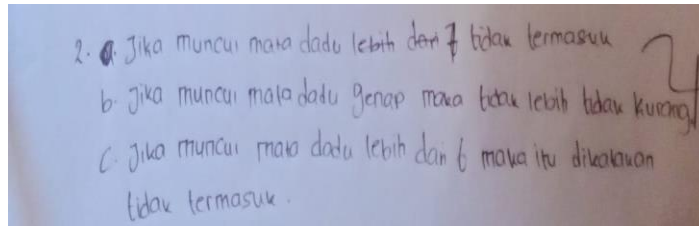 2. a. Jika muncul mata dadu lebih dari 7 tidak termasuk
b. Jika muncul mata dadu genap maka tidak lebih tidak kurang
c. Jika muncul mata dadu lebih dari 6 maka itu dikatakan
tidak termasuk.